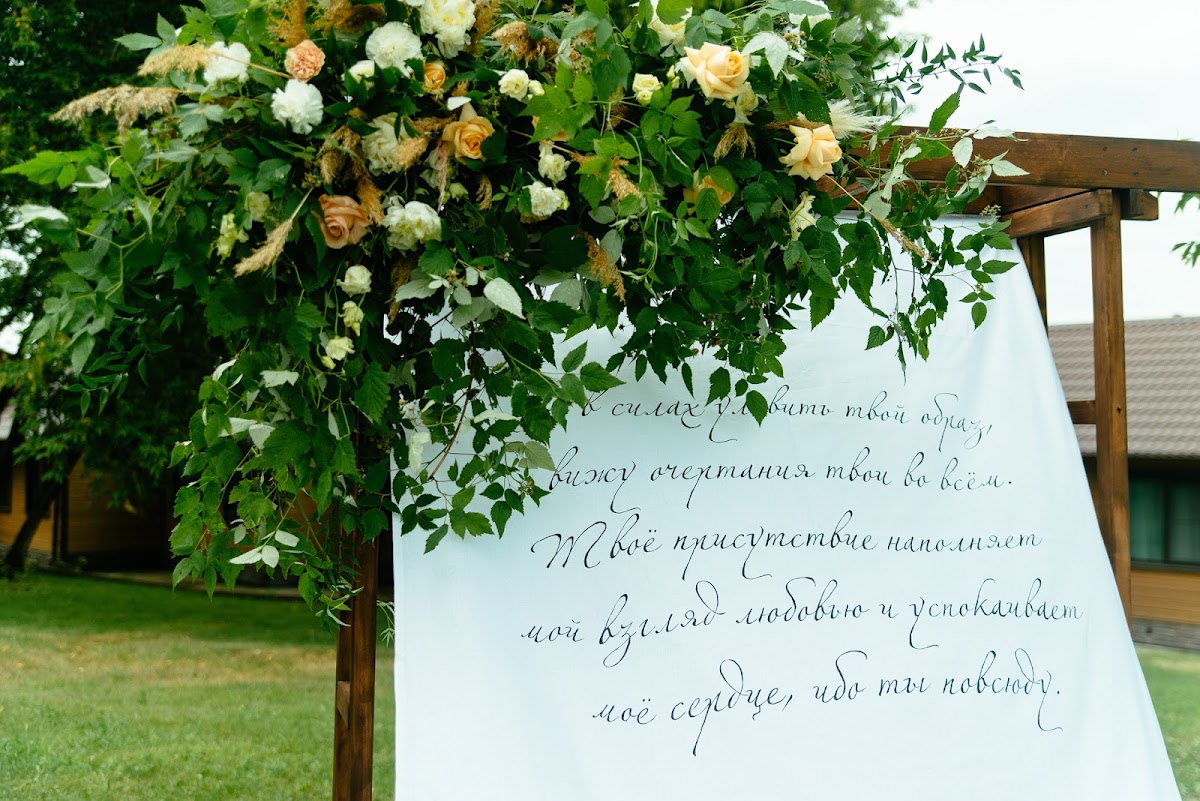 в силах уловить твой образ,
вижу очертания твои во всём.
Твоё присутствие наполняет
мой взгляд любовью и успокаивает
моё сердце, ибо ты повсюду.